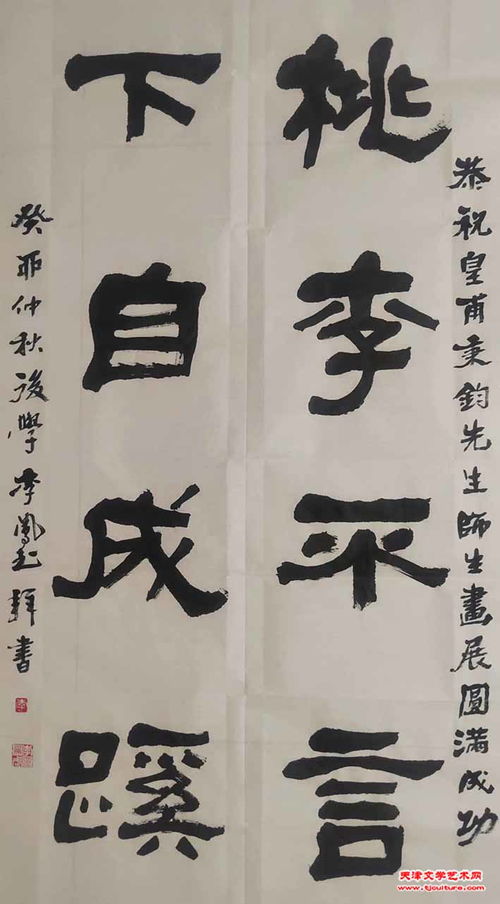 恭祝皇甫秉鈞先生師生畫展圓滿成功
桃李不言
下自成蹊
癸卯仲秋後學李鳳玉拜書
天津文学艺术网
www.tjculture.com